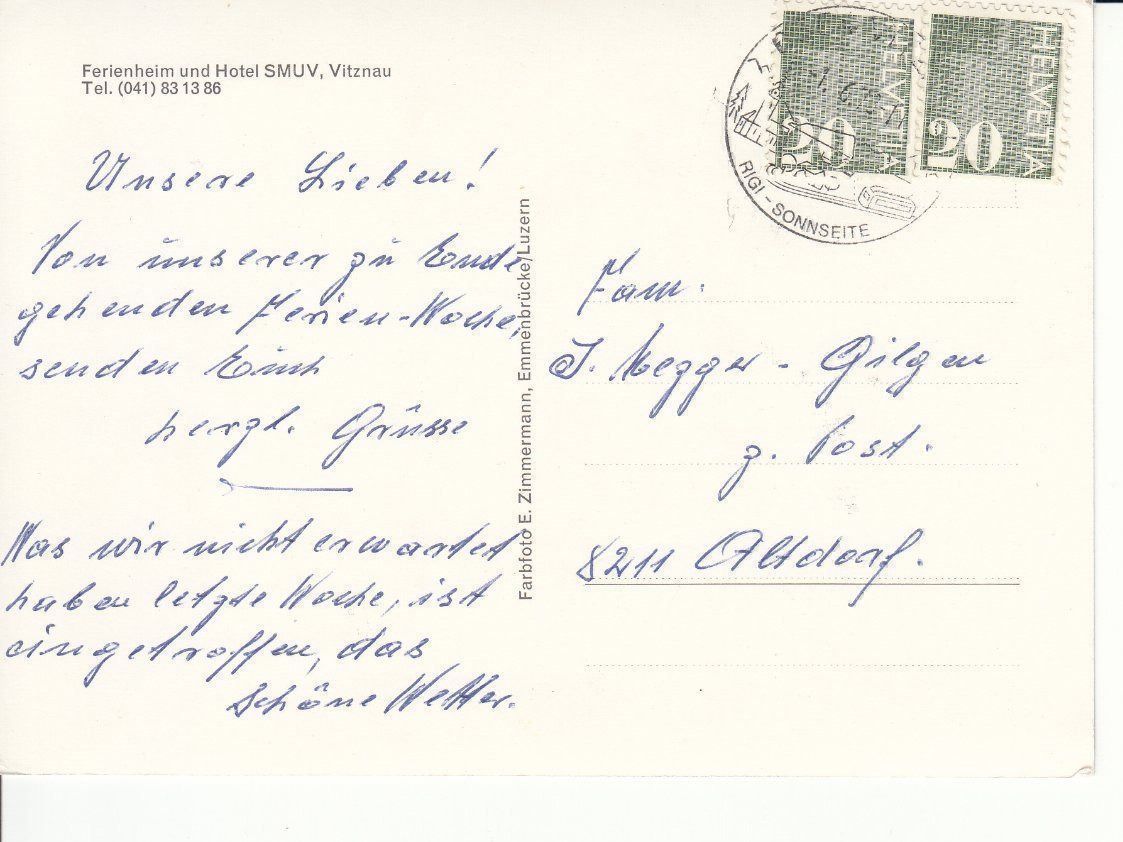 Ferienheim und Hotel SMUV, Vitznau
Tel. (041) 83 13 86
Unsere Lieben!
Von unserer zu Ende
gehenden Ferien-Woche,
senden Euch
herzl. Grüsse
Was wir nicht erwartet
haben letzte Woche, ist
eingetroffen, das
schöne Wetter.
Farbfoto E. Zimmermann, Emmenbrücke/Luzern
HELVETIA
20
HELVETIA
20
RIGI - SONNSEITE
Fam.
J. Mezger - Gilgen
z. Post.
8211 Altdorf.